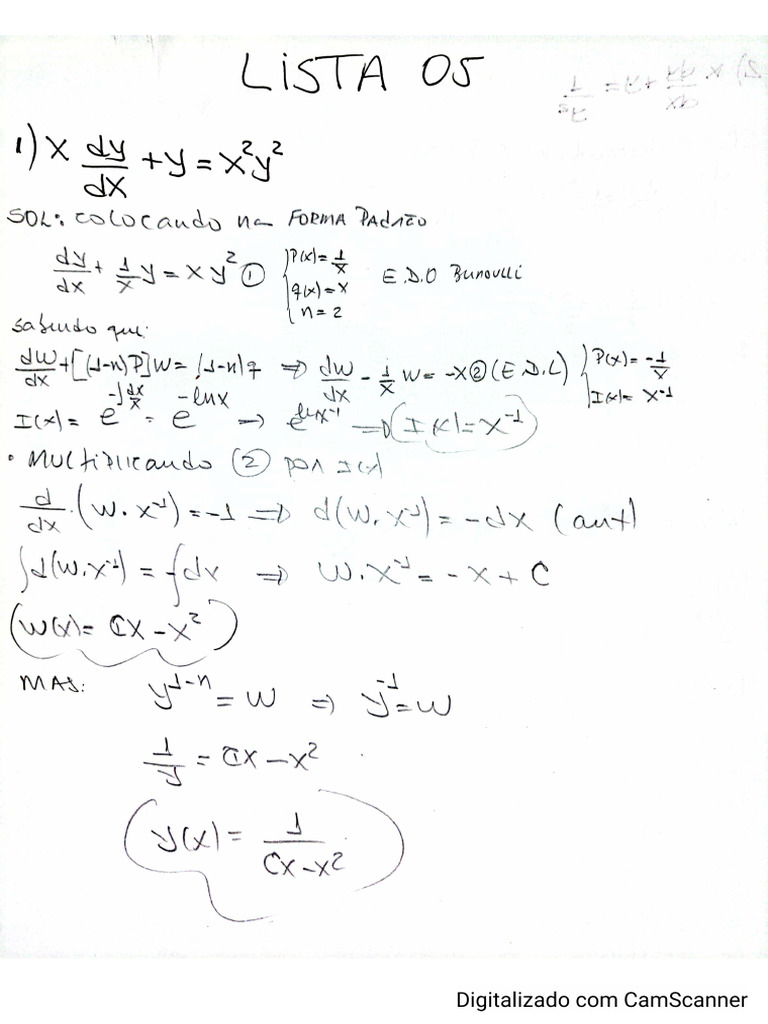 LISTA 05
1) x dy/dx + y = x²y²
SOL: colocando na FORMA PADRÃO
dy/dx + 1/x y = x y² ① { P(x) = 1/x q(x) = x n = 2 E.D.O Bernoulli
sabendo que:
dw/dx + [(1-n)P]w = (1-n)q ⇒ dw/dx - 1/x w = -x ② (E.D.L) { P(x) = -1/x I(x) = x⁻¹
I(x) = e^(-∫dx/x) = e^(-lnx) → e^(lnx⁻¹) ⇒ I(x) = x⁻¹
• MULTIPLICANDO ② por I(x)
d/dx · (w · x⁻¹) = -1 ⇒ d(w · x⁻¹) = -dx (ant)
∫d(w·x⁻¹) = -∫dx ⇒ w·x⁻¹ = -x + C
w(x) = Cx - x²
MAS: y^(1-n) = w ⇒ y⁻¹ = w
1/y = Cx - x²
y(x) = 1/(Cx - x²)
Digitalizado com CamScanner